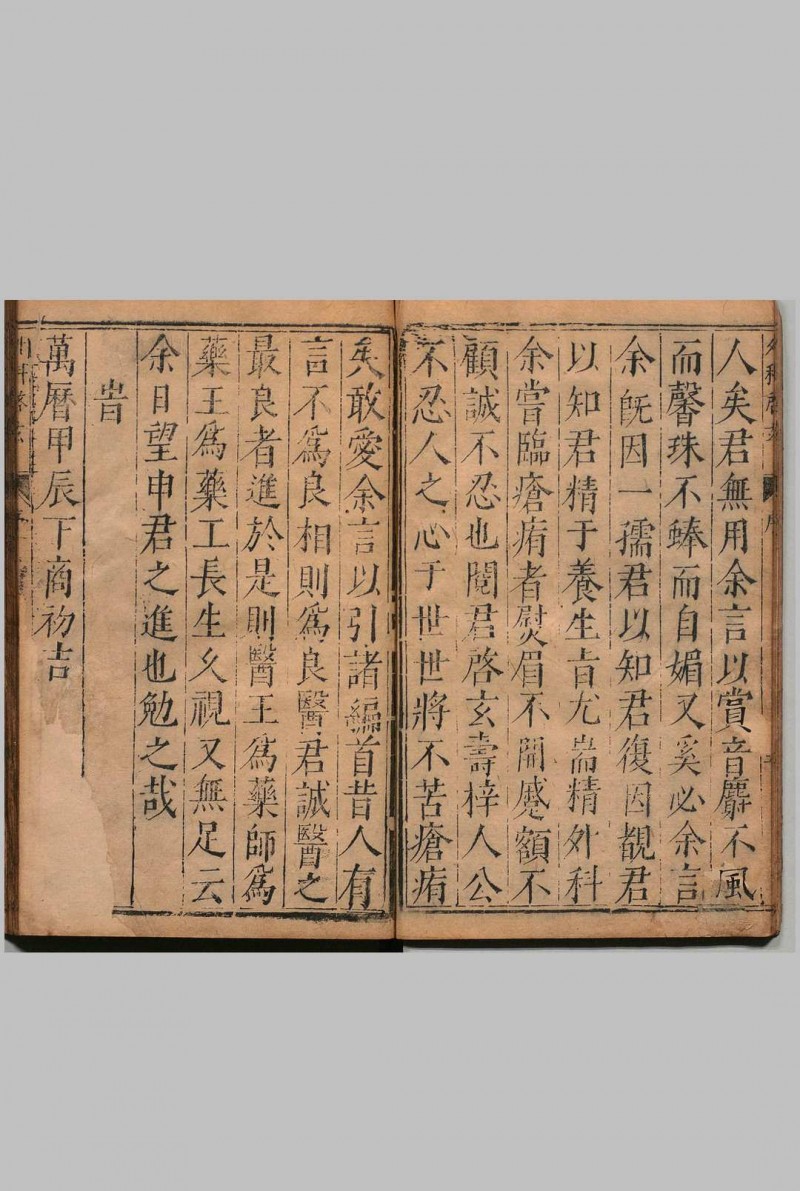 人矣君無用余言以賞音麝不風
而馨珠不蜯而自媚又奚必余言
余旣因一孺君以知君復因覩君
以知君精于養生旨尤耑精外科
余嘗臨瘡痏者熨眉不開蹙額不
顧誠不忍也閱君啓玄壽梓人公
不忍人之心于世世將不苦瘡痏
矣敢愛余言以引諸編首昔人有
言不爲良相則爲良醫君誠醫之
最良者進於是則醫王爲藥師爲
藥王爲藥工長生久視又無足云
余日望申君之進也勉之哉
旹
萬曆甲辰下商初吉